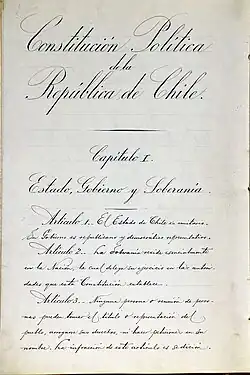 Constitución Política
de la
República de Chile.
Capítulo I.
Estado, Gobierno y Soberanía.
Artículo 1.- El Estado de Chile es unitario.
Su Gobierno es republicano y democrático representativo.
Artículo 2.- La Soberanía reside esencialmente
en la Nación, la cual delega su ejercicio en las autori-
dades que esta Constitución establece.
Artículo 3.- Ninguna persona o reunión de perso-
nas pueden tomar el título o representación del
pueblo, arrogarse sus derechos, ni hacer peticiones en su
nombre. La infracción de este artículo es sedición.